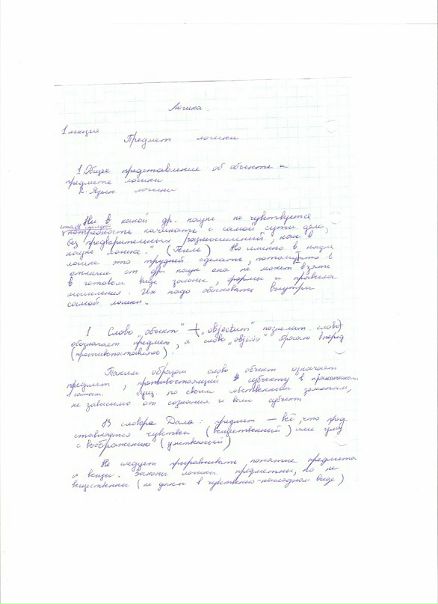 Логика.
1 лекция
Предмет логики
1. Общее представление об объекте и
предмете логики
2. Язык логики
Ни в какой др. науке не чувствуется
потребность начинать с самой сути дела,
без предварительных размышлений, как в
науке логика. Но именно в науке
логике это труднее сделать, потому что в
отличие от др. наук она не может взять
в готовом виде законы, формы и правила
мышления. Их надо обосновать внутри
самой логики.
1 Слово "объект"
обозначает предмет, а слово бросаю вперед
(противопоставляю).
Таким образом слово объект означает
предмет, противостоящий субъекту в
по своим собственным законам,
не зависимо от сознания и воли субъект
В словаре Даля: предмет — всё, что пред
ставляется чувствам (вещественный) или уму
и воображению (умственный)
Не следует приравнивать понятие предмета
и вещи. Законы логики предметны, но не
вещественны (не даны в чувственно-наглядном виде)